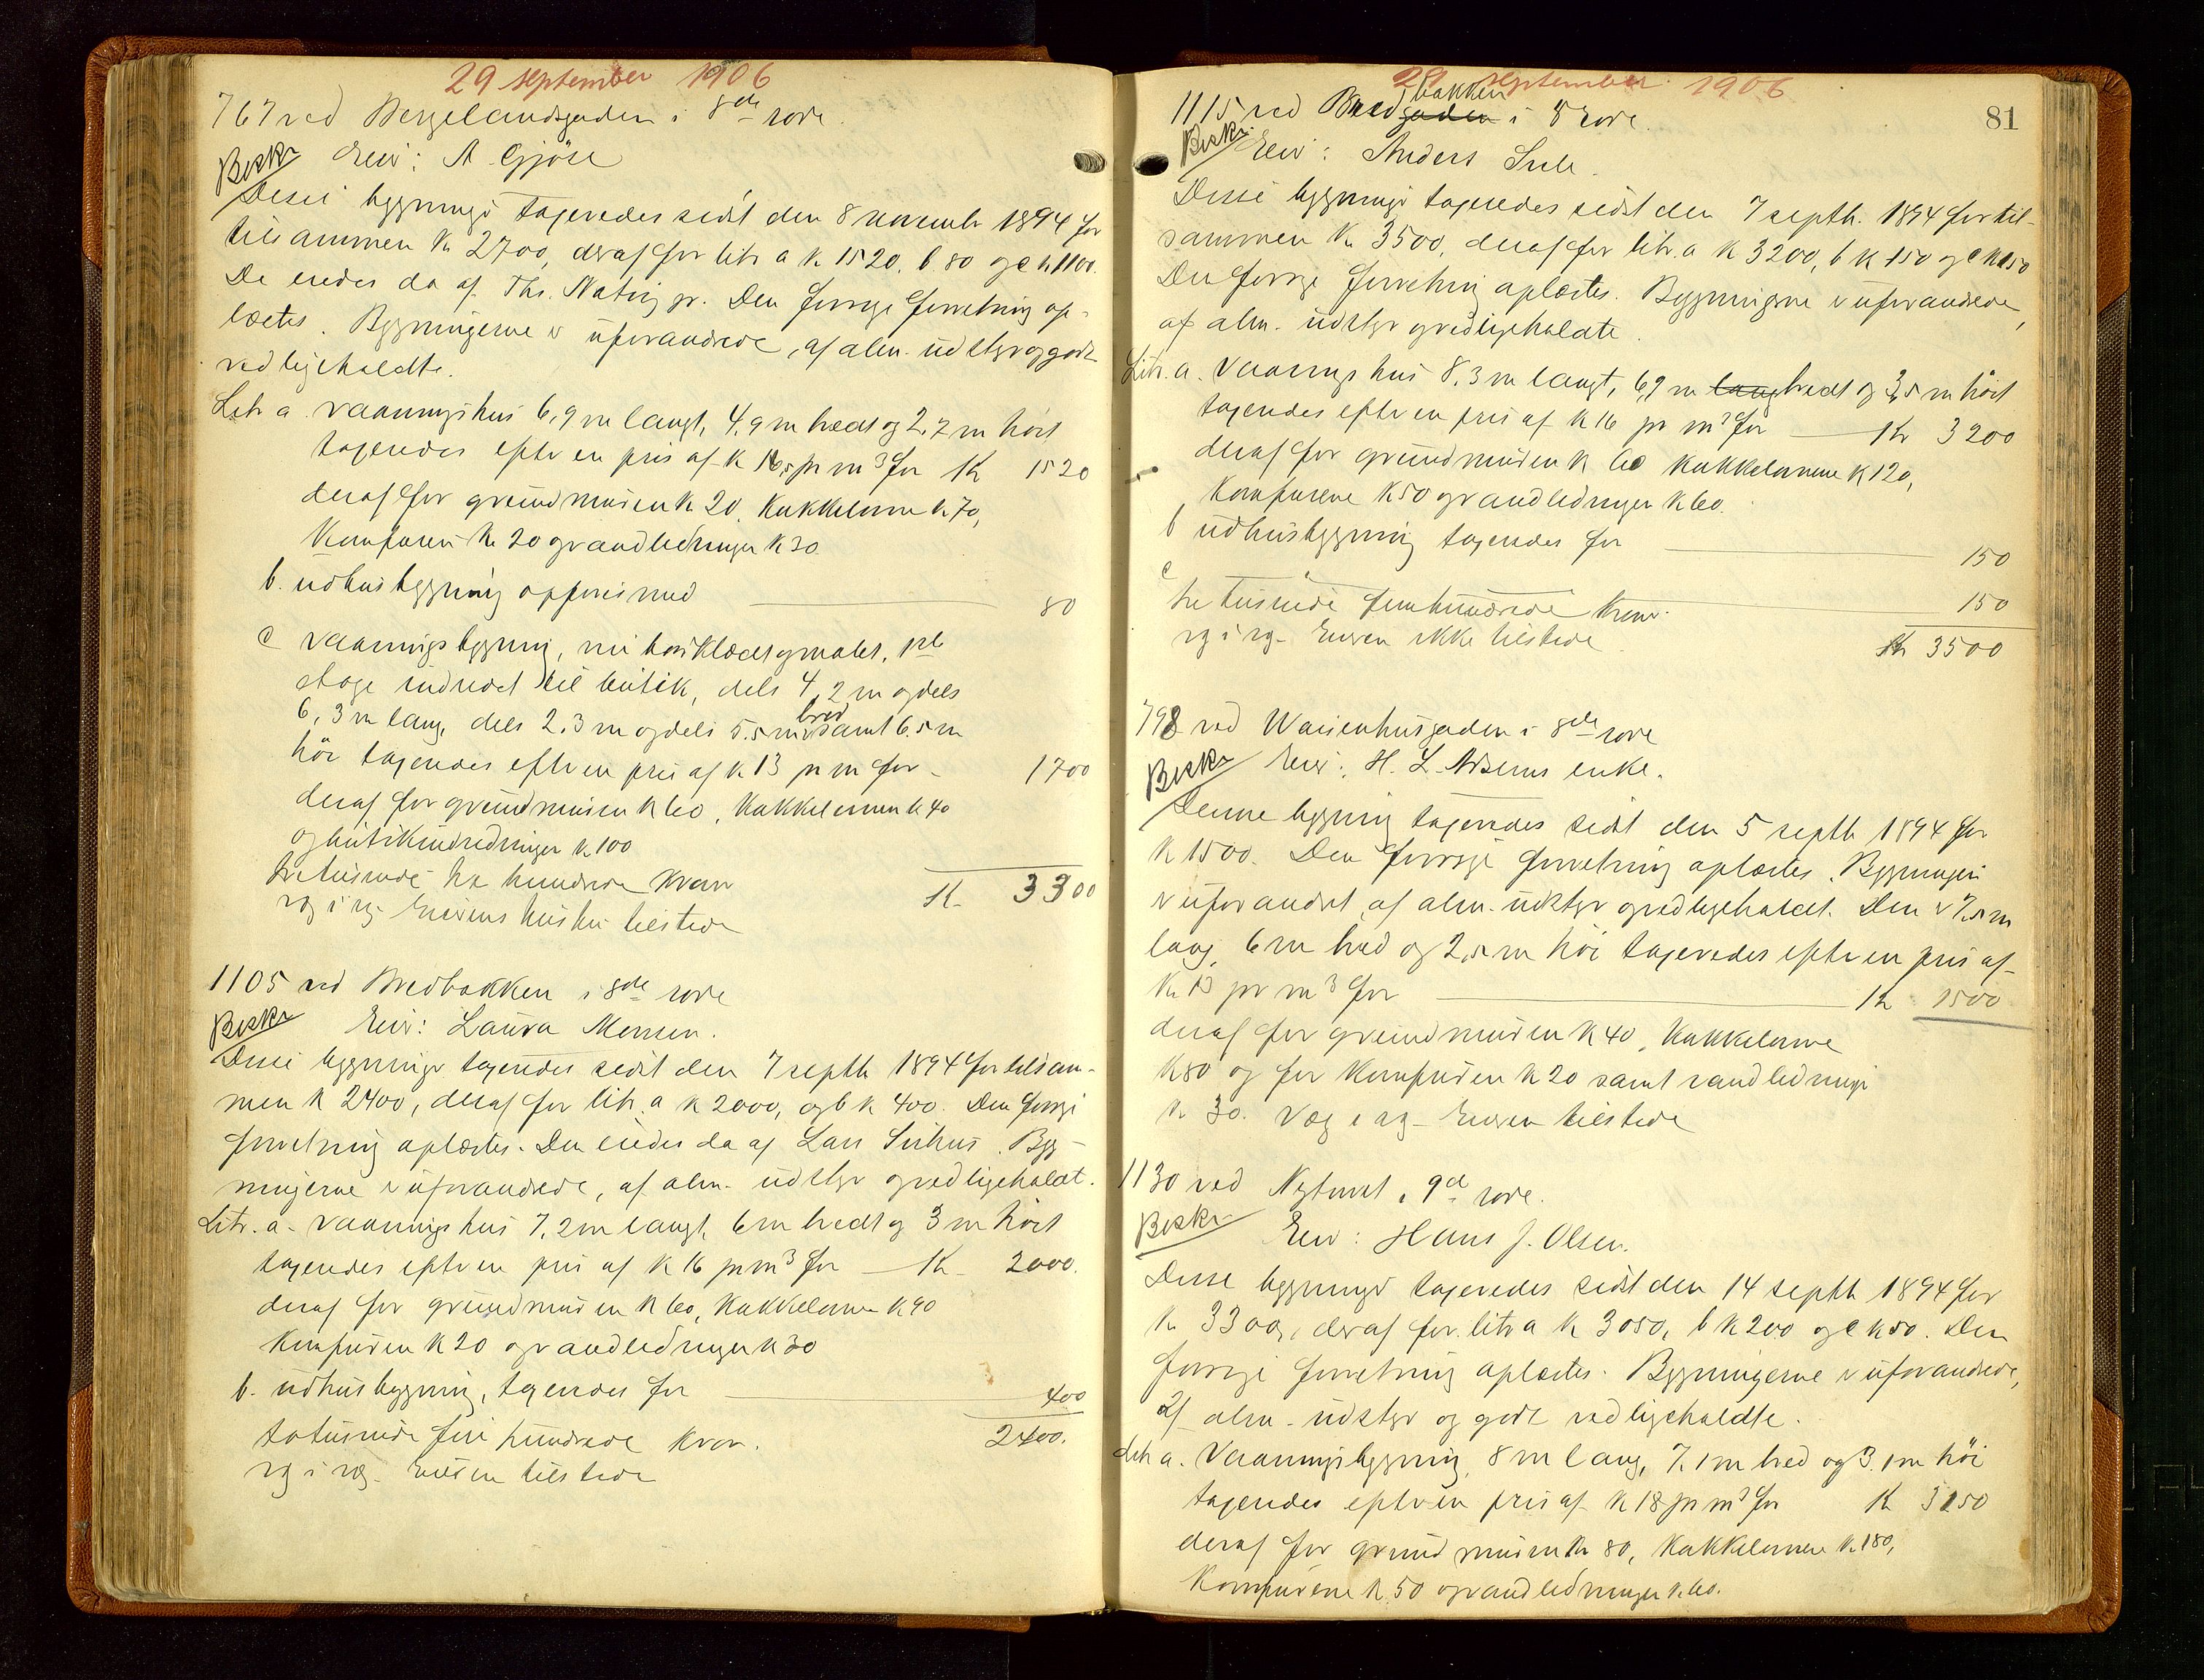 29 september 1906
767 ved Bergelandsgaden i 8de rode.
Beskr Eier: A Gjöse
Disse bygninger taxeredes sidst den 8 novembr 1894 for
tilsammen Kr 2700, deraf for litr a k 1520, b 80 og c kr 1100.
De eiedes da af Ths. Natvig jr. Den forrige forretning op-
læstes. Bygningerne er uforandrede, af alm. udstyr og godt
vedligeholdte.
Litr a vaaningshus 6,9 m langt, 4,9 m bredt og 2,7 m höit
taxeredes efter en pris af k 16,5 pr m3 for Kr 1520
deraf for grundmuren k 20, Kakkelovne k 70,
Komfuren kr 20 og vandledninger k 30
b. udhusbygning opføres med 80
c vaaningsbygning, ny bordklædt og malet, 1ste
etage indredet til butik, dels 4,2 m og dels
6,3 m lang, dels 2.3 m og dels 5.5 m bred samt 6.5 m
höi taxeredes efter en pris af k 13 pr m for 1700
deraf for grundmuren k 60, Kakkelovnen k 40
og butikindredninger k 100
tretusinde tre hundrede Kroner Kr 3300
rg i rg. Eierens hustru tilstede
1105 ved Bredbakken i 8de rode
Beskr Eier: Laura Monsen.
Disse bygninger taxeredes sidst den 7 septbr 1894 for tilsam-
men k 2400, deraf for litr. a k 2000, og b k 400. Den forrige
forretning oplæstes. Den eiedes da af Lars Sirhus. Byg-
ningerne er uforandrede, af alm. udstyr og vedligeholdt.
Litr. a. vaaningshus 7,2 m langt, 6 m bredt og 3 m höit
taxeredes efter en pris af k 16 pr m3 for Kr 2000.
deraf for grundmuren k 60, Kakkelovne k 90
Komfuren k 20 og vandledninger k 30
b. udhusbygning, taxeredes for 400
totusinde fire hundrede Kroner. 2400.
rg i rg. Eieren tilstede
29 september 1906
81
1115 ved Bredgaden bakken i 8 rode.
Beskr. Eier: Anders Sele.
Disse bygninger taxeredes sidst den 7 septbr. 1894 for til-
sammen k 3500, deraf for litr. a k 3200, b k 150 og c k 150
Den forrige forretning oplæstes. Bygningerne er uforandrede,
af alm. udstyr og vedligeholdte.
Litr. a. Vaaningshus 8,3 m langt, 6,9 m lang bredt og 3,5 m höit
taxeredes efter en pris af k 16 pr m3 for Kr 3200
deraf for grundmuren k 60 Kakkelovnene k 120,
Komfurene k 50 og vandledninger k 60.
b udhusbygning taxeredes for 150
c 150
tre tusinde femhundrede kroner. Kr 3500
rg i rg. Eieren ikke tilstede
798 ved Waisenhusgaden i 8de rode
Beskr Eier: H. L. enke.
Denne bygning taxeredes sidst den 5 septbr 1894 for
k 1500. Den forrige forretning oplæstes. Bygningen
er uforandret af alm. udstyr og vedligeholdt. Den er 7,5 m
lang, 6 m bred og 2,5 m höi taxeredes efter en pris af
k. 13 pr m3 for Kr 1500
deraf for grundmuren k 40, Kakkelovne
k 80 og for Komfuren k 20 samt vandledninger
k 30. Rg i rg. Eieren tilstede
1130 ved Nytorvet i 9de rode.
Beskr. Eier: Hans J. Olsen.
Disse bygninger taxeredes sidst den 14 septbr 1894 for
k 3300, deraf for litr a k 3050, b k 200 og c k 50. Den
forrige forretning oplæstes. Bygningerne er uforandrede,
af alm. udstyr og godt vedligeholdte.
Litr a. Vaaningsbygning, 8 m lang, 7.1 m bred og 3.1 m höi
taxeredes efter en pris af k 18 pr m3 for Kr 3150
deraf for grundmuren kr 80, Kakkelovnene k. 180,
Komfurene k 50 og vandledninger k. 60.